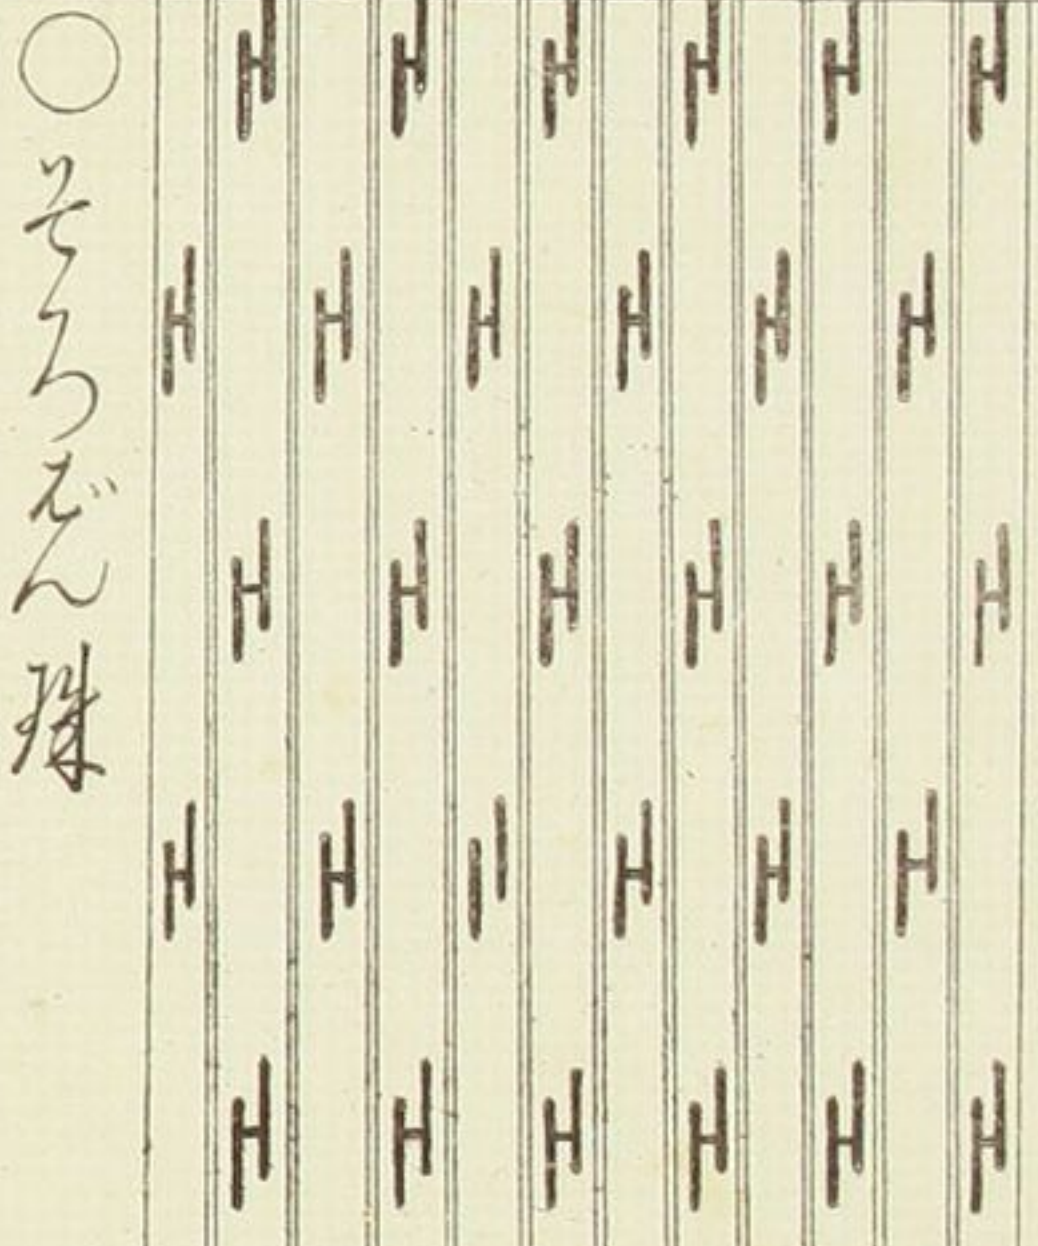 ○そろばん珠